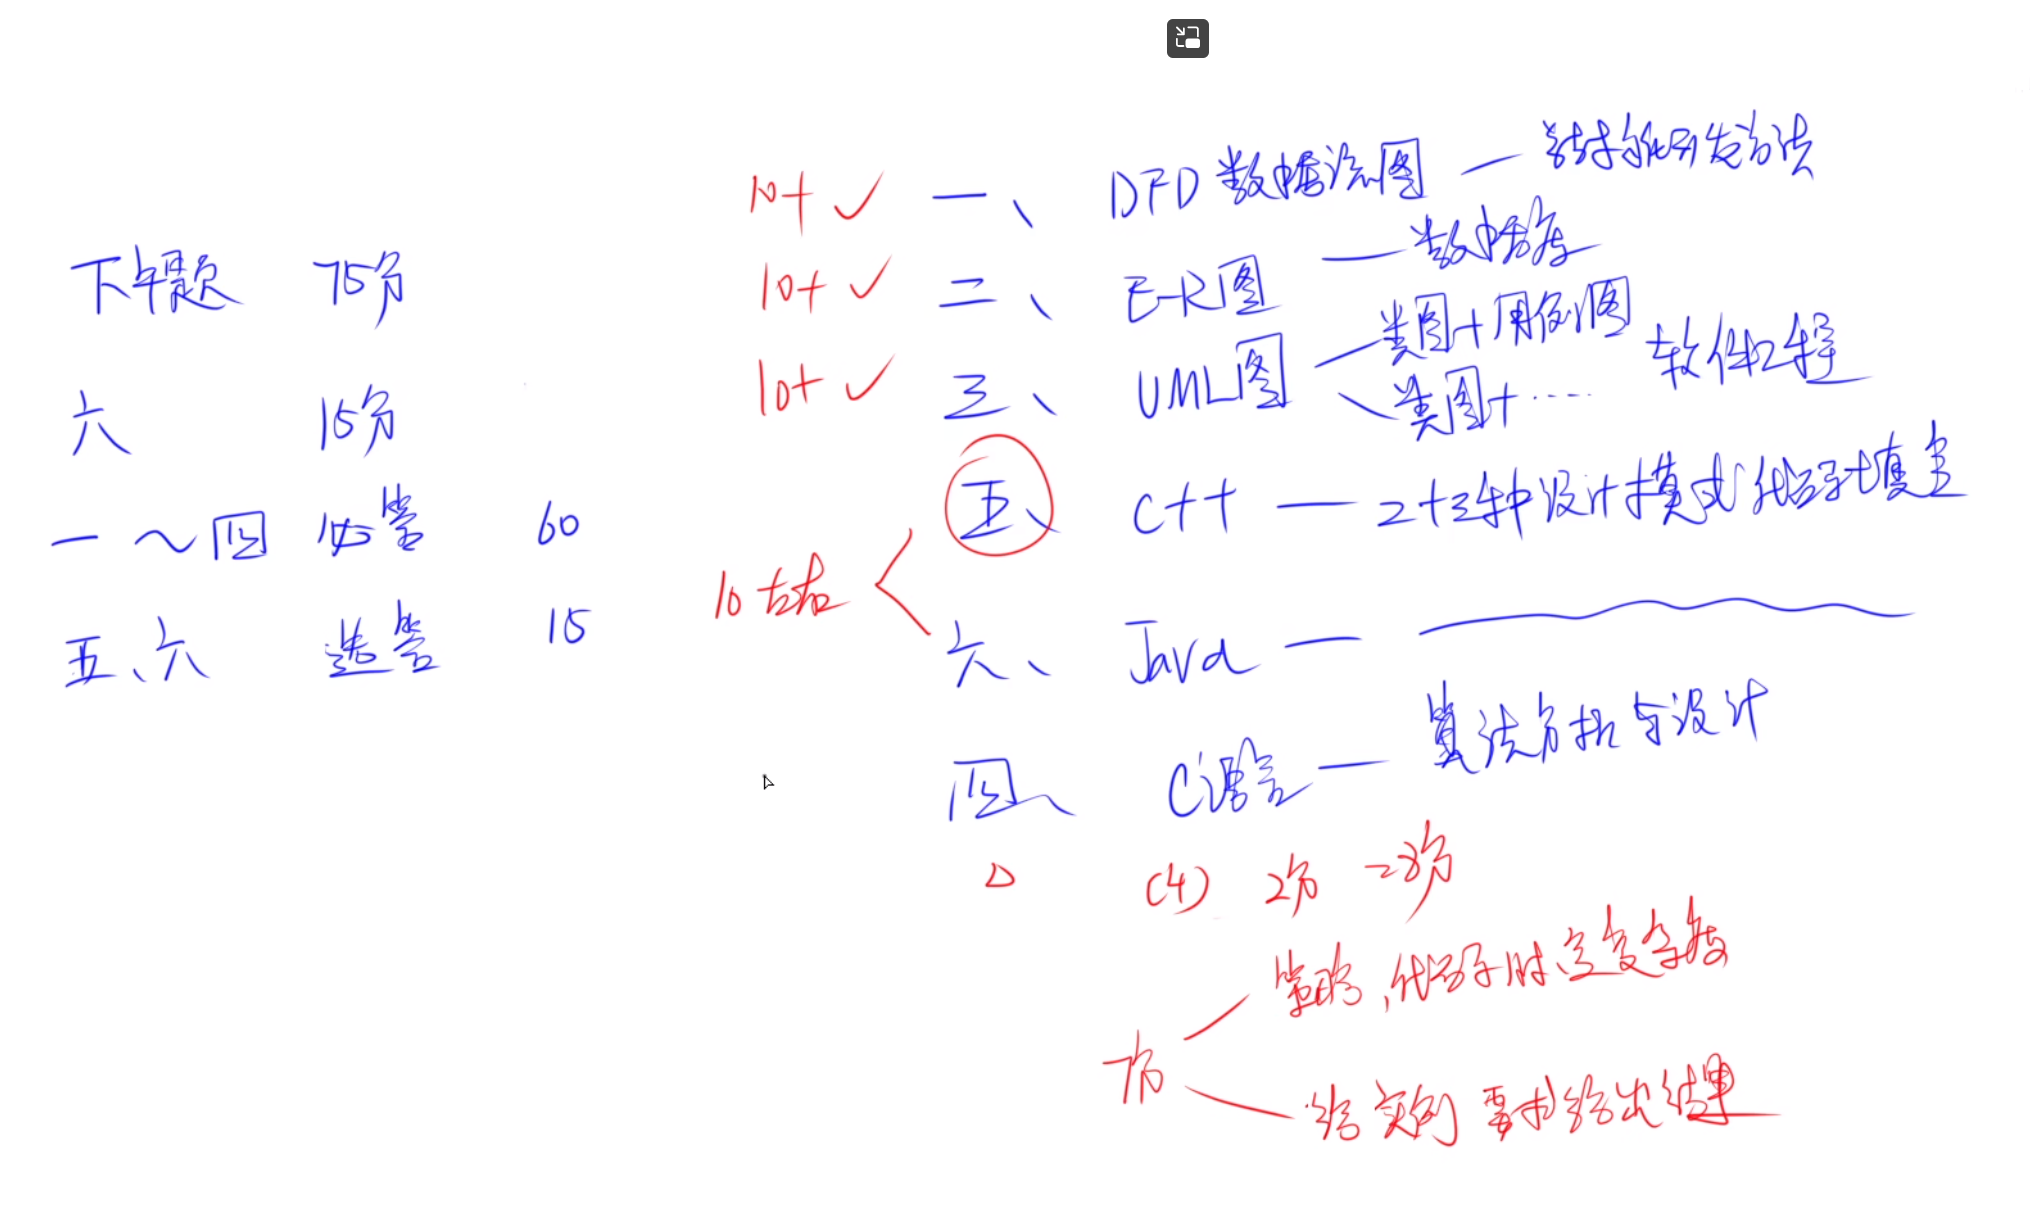 下午题 75分
六 15分
一～四 必答 60
五、六 选答 15
10+ ✓ 一、 DFD 数据流图 — 结构化开发方法
10+ ✓ 二、 E-R图 — 数据库
10+ ✓ 三、 UML图 类图+用例图 软件工程
类图+……
五、 C++ — 二十三种设计模式 代码填空
10左右
六、 Java —
四、 C语言 — 算法分析与设计
△ (4) 2分 =8分
7分
策略,代码时间复杂度
给实例 要求给出结果